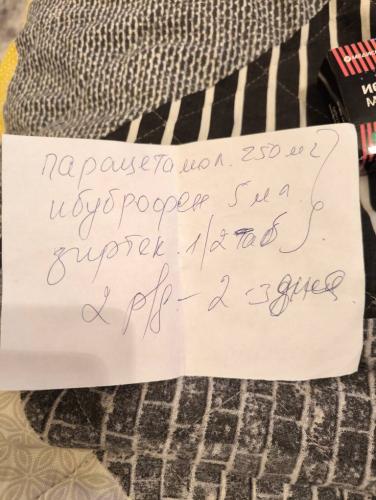 парацетамол. 250 мг
ибупрофен 5 мл.
зиртек. 1/2 таб
2 р/д – 2-3 дня.